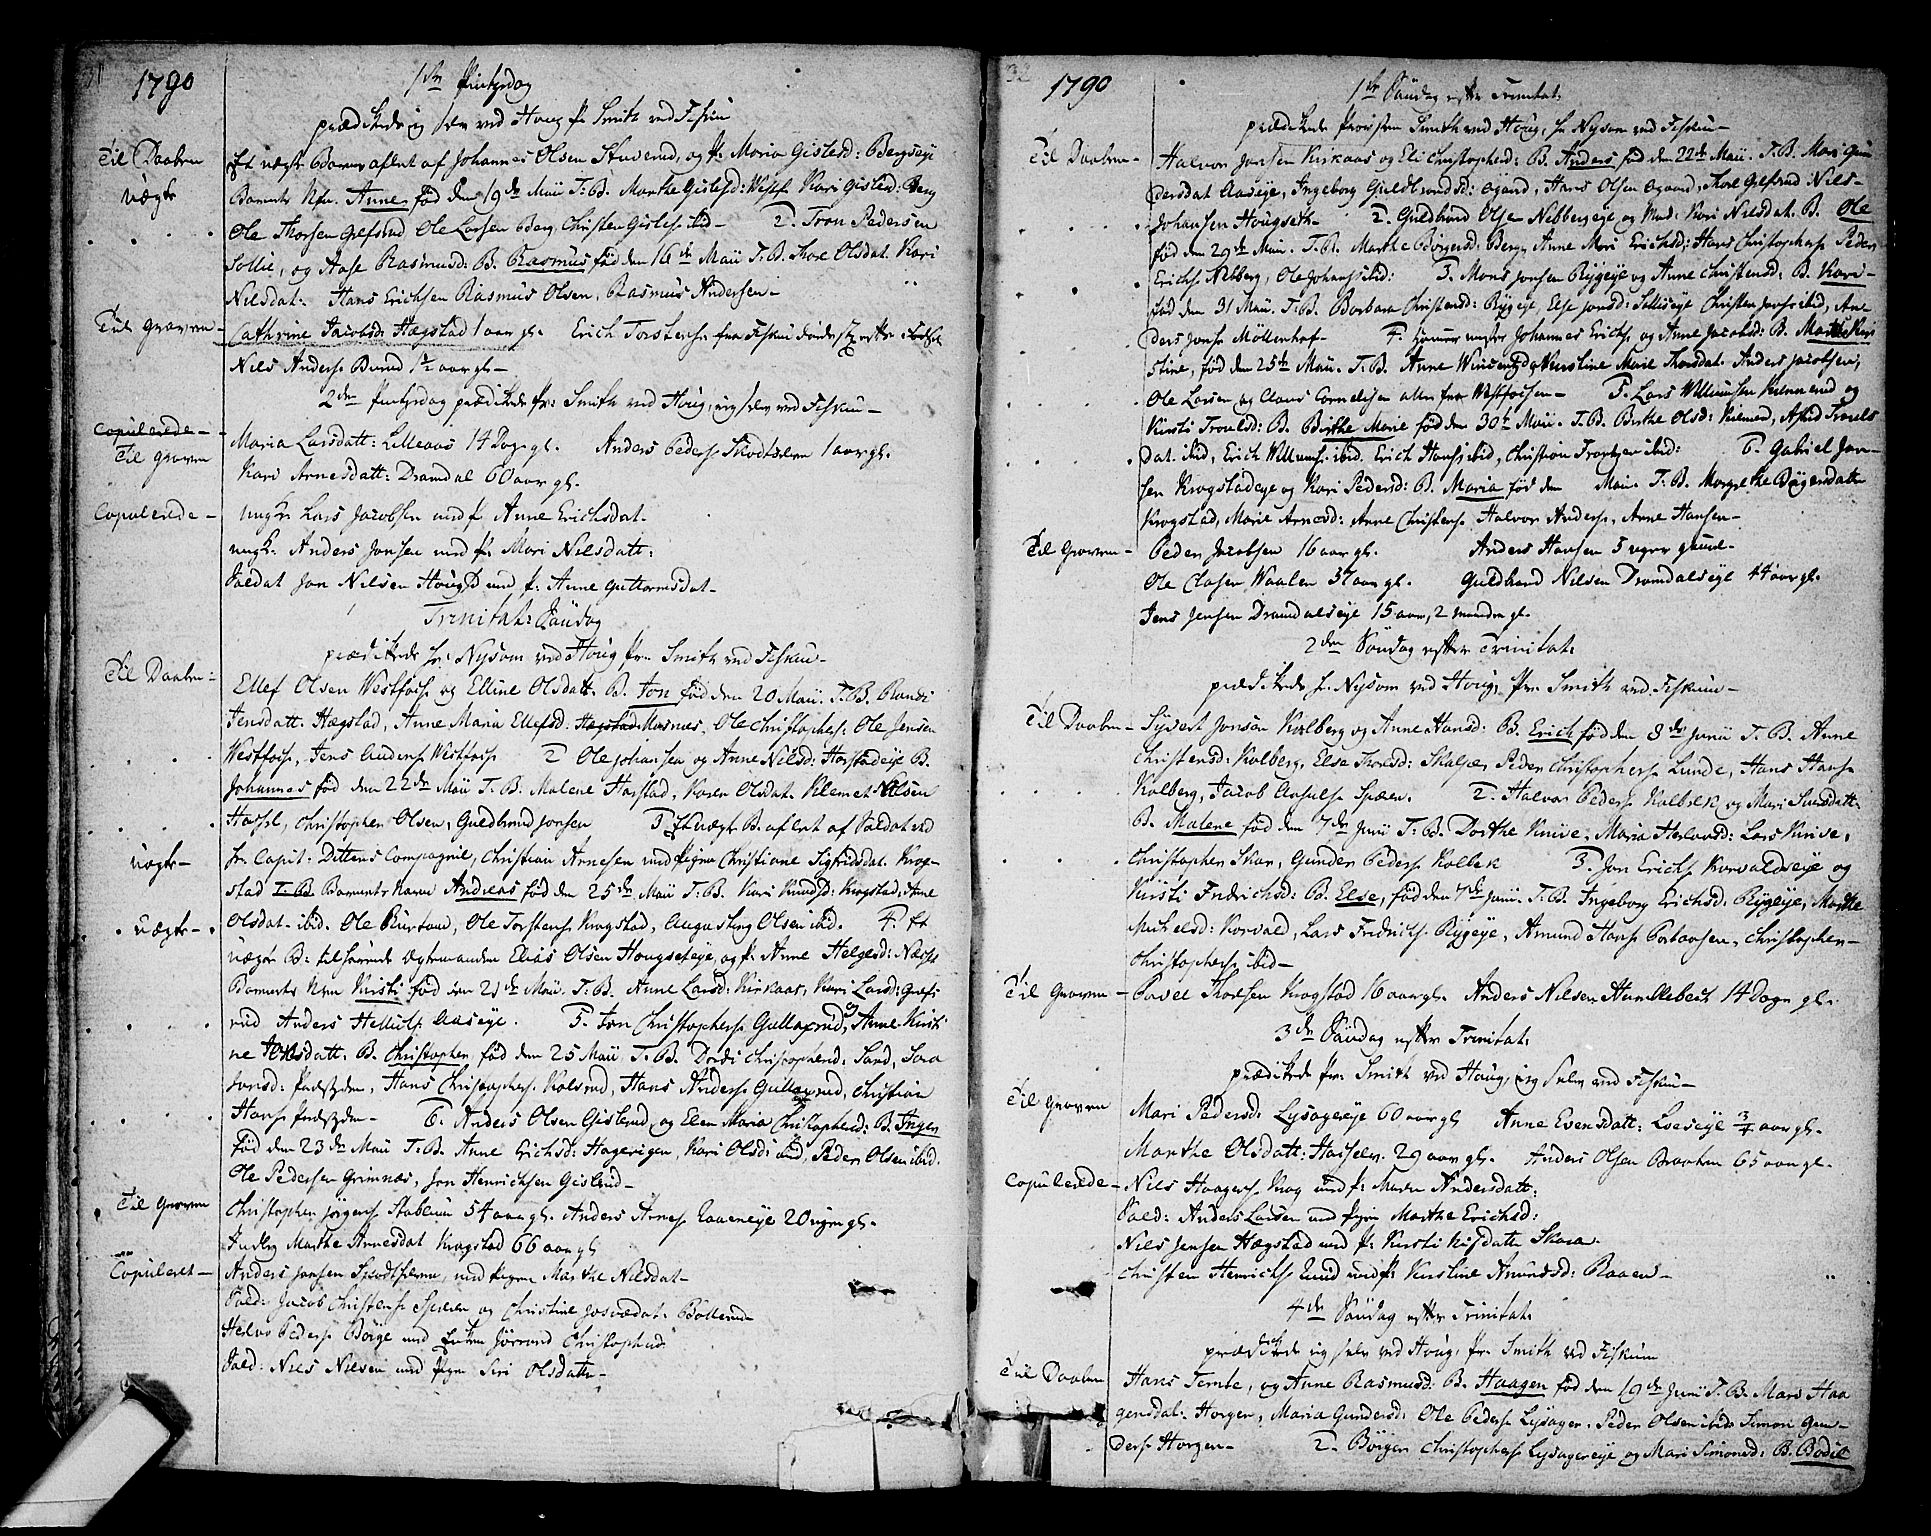 31
1790
1ste Pintzedag
prædikede jeg selv ved Houg hr. Smith ved Fiskum
Til Daaben
Et uægte Barn aflet af Johannes Olsen Stuverud, og p. Maria Gislesd: Bergseye
uægte
Barnets Nfn. Anne fød den 19de Maii T. B. Marthe Gislesd: Kari Gislesd: Berg
Ole Thorsen Gefsrud Ole Larsen Berg Christen Gislesen ibid - 2. Tron Pedersen
Sollie, og Aase Rasmusd: B. Rasmus fød den 16de Maii T. B. Thore Olsdat. Kari
Nilsdat: Hans Erichsen Rasmus Olsen, Rasmus Andersen -
Til Graven -
Cathrine Jacobsd: Hægstad 1 aar gl. Erich Torstens. fra Fiskum
Nils Anders. Burud 1½ aar gl -
2den Pintzedag prædikede hr: Smith ved Houg, jeg selv ved Fiskum -
Copulerede -
Til Graven
Maria Larsdatt: Lilleaas 14 Dage gl. Anders Peders. Skodtselven 1 aar gl.
Kari Arnesdatt: Dramdal 60 aar gl.
Copulerede -
ungk. Lars Jacobsen med p. Anne Erichsdat.
ungk. Anders Jonsen med p. Mari Nilsdatt:
Soldat Jon Nilsen Houg med p. Anne Guttormsdat -
Trinitat: Søndag
prædikede hr. Nysom ved Houg hr. Smith ved Fiskum -
Til Daaben -
Ellef Olsen Westfos. og Elline Olsdatt: B. Jon fød den 20 Maii. T. B. Randi
Jensdatt. Hægstad, Anne Maria Ellefsd. Hægstad Masnus, Ole Christophers. Ole Jensen
Westfos., Jens Anders. Westfos. 2 Ole Johansen og Anne Nilsd: Harstadeye B.
Johannes fød den 22de Maii T. B. Malene Harstad, Karen Olsdat. Klemet Nilsen
Hassel, Christopher Olsen, Guldbrand Jonsen 3 Et uægte B. aflet af Soldat ved
uægte -
hr. Capit: Dittens Compagnie, Christian Arnesen med Pigen Christiane Sigfridsdat. Krog-
stad T. B. Barnets Navn Andreas fød den 25de Maii T. B. Kari Knudsd: Krogstad, Anne
uægte -
Olsdat. ibid. Ole Burtom, Ole Torstens. Krogstad, Augustinus Olsen ibid. 4. Et
uægte B. tilhørende Ægtemanden Elias Olsen Hougseteye, og p. Anne Helgesd:
Barnets Nfn Kirsti fød den 21de Maii. T. B. Anne Larsd: Kirkaas, Kari Larsd:
rud Anders Aaseye. 5. Jon Christophers. Gullaxrud, og Anne Kirsti
ne Jensdatt: B. Christopher fød den 25 Maii T. B. Dordi Christophersd: Sand, Sara
Jonsd: Hans Christophers. Kolsrud, Hans Anders. Gullaxrud, Christian
Hans. 6. Anders Olsen Gislerud og Elen Maria Christophersd: B. Inger
fød den 23de Maii T. B. Anne Erichsd: Hagerigen, Kari Olsd: ibid, Peder Olsen ibid.
Ole Pedersen Grimnæs, Jon Henrichsen Gislerud -
Til Graven
Christopher Jørgens. Stablum 54 aar gl. Anders Arnes. Raaeneye 20 uger gl.
Marthe Arnesdat Krogstad 66 aar gl
Copuleret -
Anders Jonsen Skodtselven, med Pigen Marthe Nilsdat -
Sold: Jacob Christens. Spæren og Christine Josvædat. Bollerud -
Helvo Peders. Børge med Enken Jørrand Christophersd.
Sold: Nils Nilsen med Pigen Siri Olsdatt -
32
1790
1ste Søndag efter Trinitat:
prædikede Provsten Smith ved Houg, hr Nysom ved Fiskum -
Til Daaben -
Halvor Jonsen Kirkaas og Eli Christophersd: B. Anders fød den 22de Maii. T. B. Mari Gun
dersdat Aaseye, Ingeborg Guldbrandsd: Ogaard, Hans Olsen Ogaard, Thore Gefsrud Nils
Johansen Hougseth - 2. Guldbrand Olsen Nebbergeye og Mad: Kari Nilsdat. B. Ole
fød den 29de Maii. T. B. Marthe Børgersd: Berg, Anne Mari Erichsd: Hans Christophers. Peder
Erichs. Nebberg, Ole Johans. ibid: 3. Mons Jonsen Rygeye og Anne Christensd: B. Kari -
fød den 31 Maii. T. B. Barbara Christensd: Rygeye, Else Jonsd: Christen Jons. ibid, An-
ders Jons. Møllenhof - 4. Johannes Erichs. og Anne Jacobsd: B. Marthe Kir
stine, fød den 25de Maii. T. B. Anne Kirstine Marie Thorsdat. Anders Jacobsen,
Ole Larsen og Claus Cornelisen alle fra Westfossen - 5. Lars Willumsen Kulmerud og
Kirsti Troulsd: B. Birthe Marie fød den 30te Maii. T. B. Birthe Olsd: Aslid Trouls
dat. ibid, Erich Willums. ibid. Erich Hans. ibid, Christian ibid: 6. Gabriel Jen-
sen Krogstadeye og Kari Pedersd: B. Maria fød den Maii. T. B. Margrethe Børgersdatt
Krogstad, Marie Arnesd: Anne Christens. Halvor Anders. Arne Hansen -
Til Graven -
Peder Jacobsen 16 aar gl. Anders Hansen 5 uger gaml -
Ole Clasen Waalen 37 aar gl. Guldbrand Nilsen Dramdalseye 44 aar gl.
Jens Jensen Dramdalseye 15 aar, 2 maaneder gl.
2den Søndag efter Trinitat:
prædikede hr Nysom ved Houg, hr. Smith ved Fiskum -
Til Daaben -
Syvert Jonsen Kolberg og Anne Hansd: B. Erich fød den 3de Junii T. B. Anne
Christensd: Kolberg, Else Troelsd: Skalpe, Peder Christophers. Lunde, Hans Hans.
Kolberg, Jacob Spæren. 2. Halvor Peders. Kolbek og Mari Larsdatt:
B. Malene fød den 7de Junii T. B. Dorthe Knive, Maria Halvorsd: Lars Knive,
Christopher Skar, Gunder Peders. Kolbek 3. Jon Erichs. Korvaldseye og
Kirsti Fredrichsd: B. Else, fød den 7de Junii. T. B. Ingeborg Erichsd: Rygeye, Marthe
Michelsd: Korvald, Lars Fredrichs. Rygeye, Amund Hans. Christopher -
Christophers. ibid -
Til Graven -
Povel Thoresen Krogstad 16 aar gl. Anders Nilsen Humblebech 14 Dage gl.
3de Søndag efter Trinitat:
prædikede hr. Smith ved Houg, jeg selv ved Fiskum -
Til Graven
Mari Pedersd: Lysagereye 60 aar gl Anne Evensdatt: Loeseye ¾ aar gl.
Marthe Olsdatt: Hasselen 29 aar gl. Anders Olsen Braaten 65 aar gl.
Copulerede -
Nils Haagens. Krog med p. Maren Andersdatt:
Sold: Anders Larsen med Pigen Marthe Erichsd:
Nils Jensen Hægstad med p. Kirsti Nilsdatt: Skara -
Christen Henrichs. Lund med p. Kirstine Amundsd: Raaen -
4de Søndag efter Trinitat:
prædikede jeg selv ved Houg, hr. Smith ved Fiskum
Til Daaben
Hans Temte, og Anne Rasmusd: B. Haagen fød den 19de Junii T. B. Mari Haa
gensdat: Horgen, Maria Gundersd: Ole Peders. Lysager, Peder Olsen ibid. Simon Gun-
ders. Horgen - 2. Børger Christophers. Lysagereye og Mari Simonsd: B. Bodil